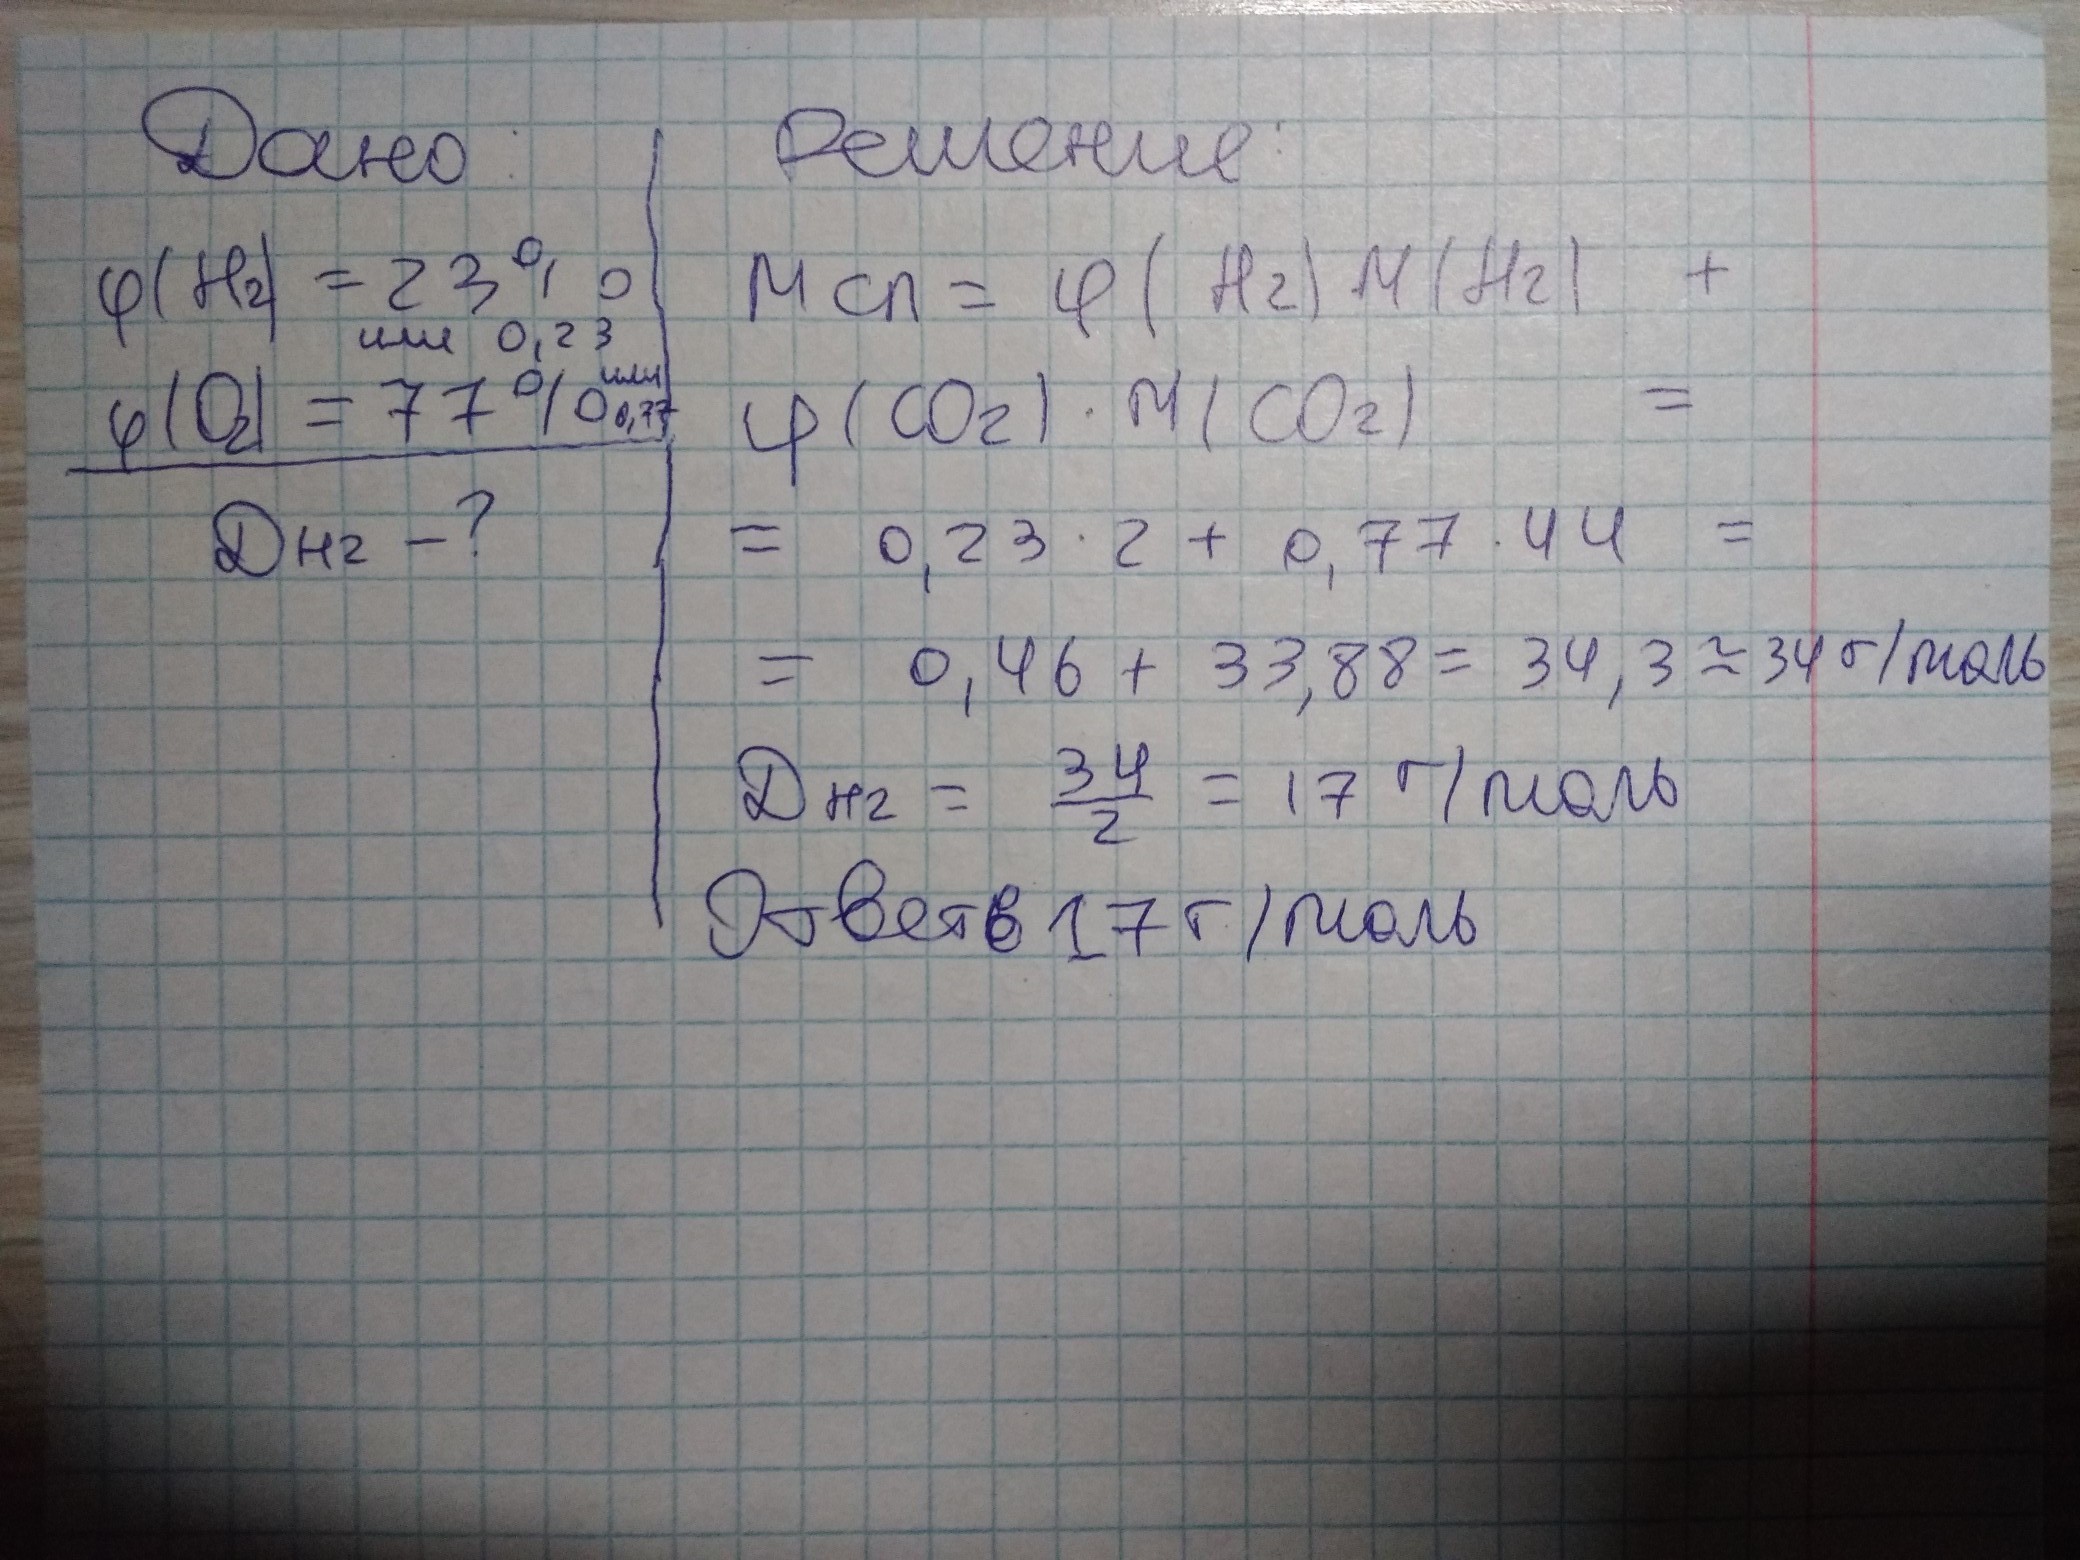 Дано:
φ(H2) = 23%
или 0,23
φ(O2) = 77% или 0,77
DH2 - ?
Решение:
Mсп = φ(H2) M(H2) +
φ(CO2) · M(CO2) =
= 0,23 · 2 + 0,77 · 44 =
= 0,46 + 33,88 = 34,3 ≈ 34 г/моль
DH2 = 34/2 = 17 г/моль
Ответ: 17 г/моль